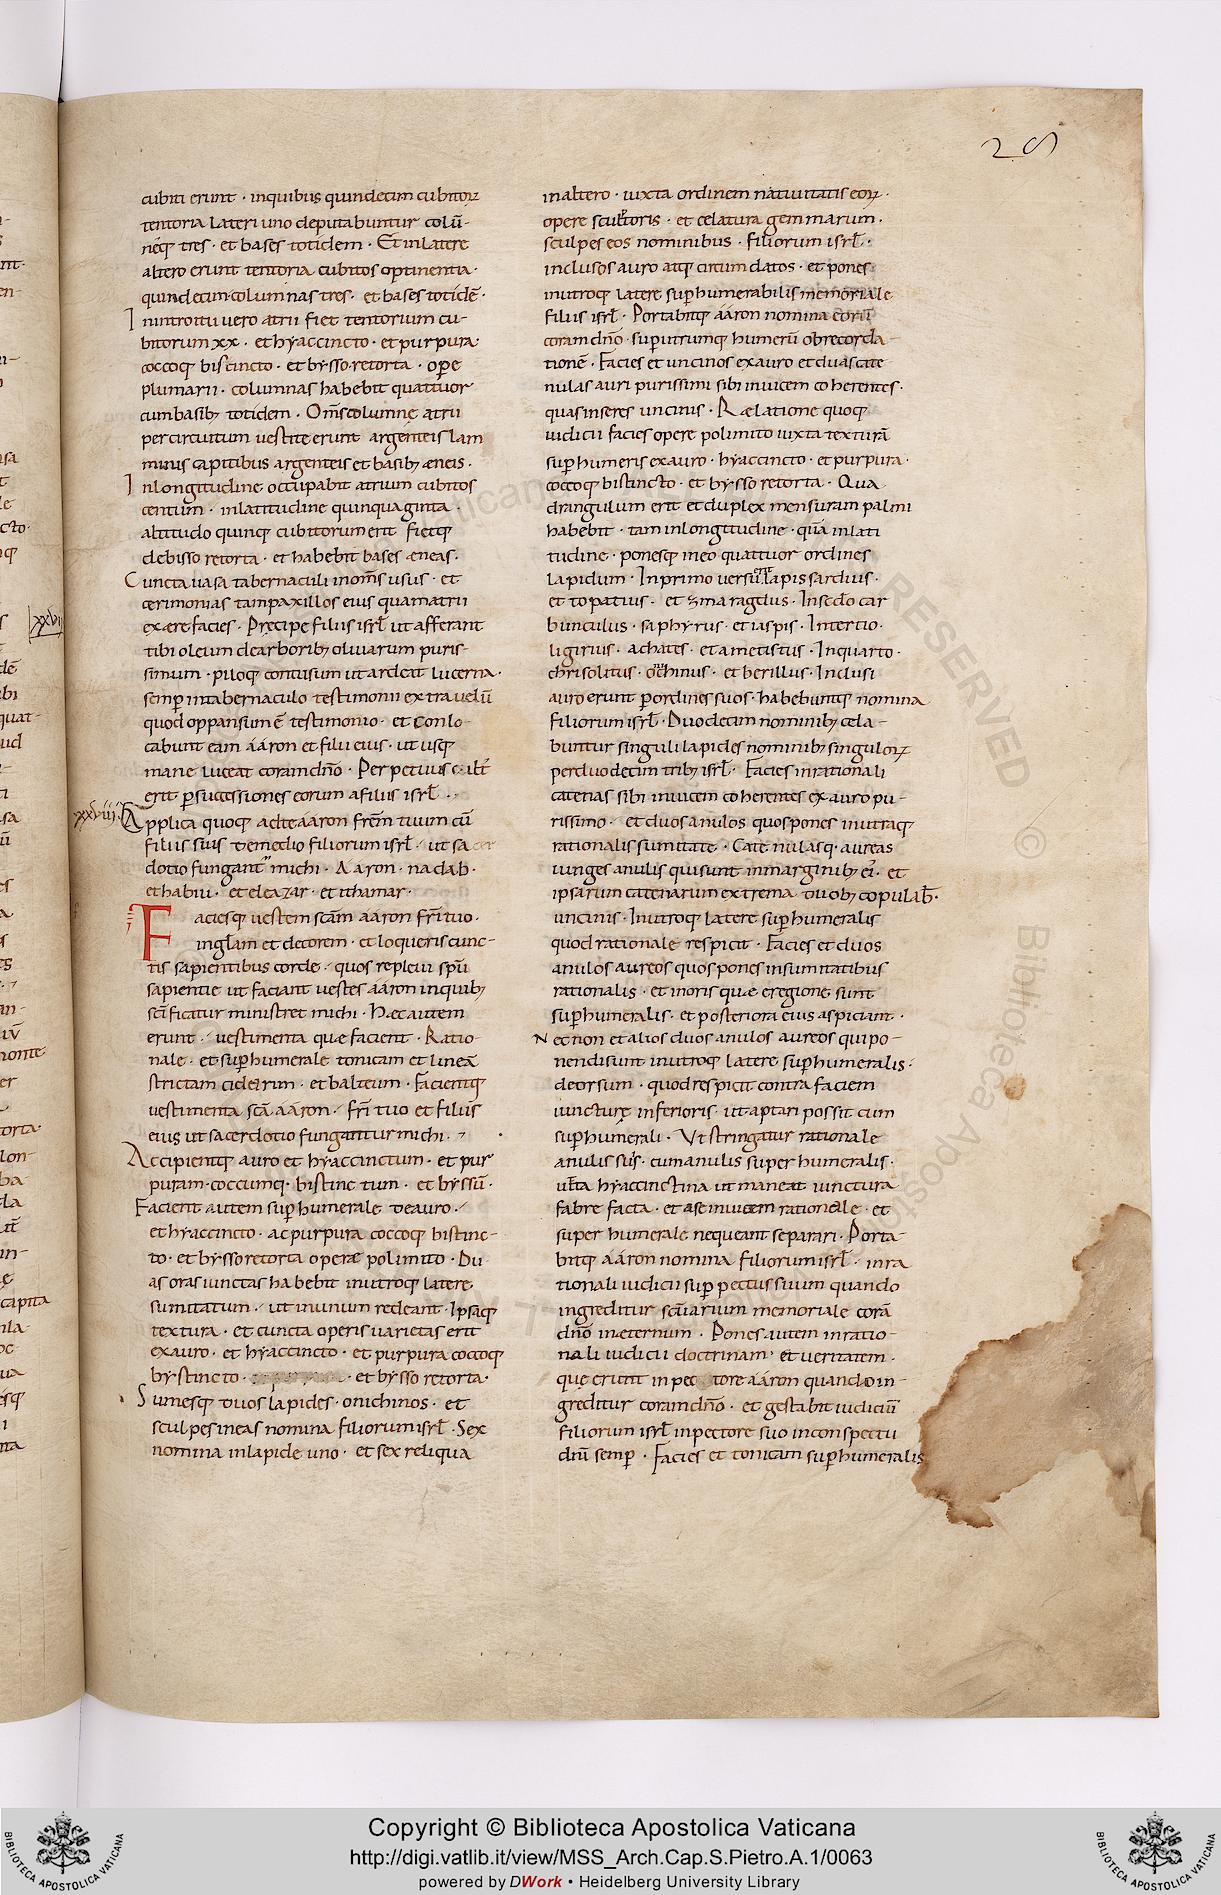 28
cubiti erunt · inquibus quindecim cubitoꝝ
tentoria lateri uno deputabuntur colū-
nęq; tres · et bases totidem · Et inlatere
altero erunt tentoria cubitos optinentia ·
quindecim · columnas tres · et bases totidē ·
Inintroitu vero atrii fiet tentorium cu-
bitorum xx · et hyaccincto · et purpura
coccoq; biscincto · et bysso retorta · opꝰ
plumarii · columnas habebit quattuor
cumbasib; totidem · Om̅s columnę atrii
percircuitum uestitę erunt argenteis lam
minis capitibus argenteis et basib; æneis ·
Inlongitudine occupabit atrium cubitos
centum · inlatitudine quinquaginta ·
altitudo quinq; cubitorum erit fietq;
debisso retorta · et habebit bases æneas ·
Cuncta uasa tabernaculi inom̅s usus · et
cerimonias tampaxillos eius quamatrii
exære facies · Pręcipe filiis isrł ut afferant
tibi oleum dearborib; oliuarum puris-
simum · piloq; contusum ut ardeat lucerna ·
semp̱ intabernaculo testimonii extra uelū
quod oppansum ē testimonio · et conlo-
cabunt eam ááron et filii eius · ut usq;
mane luceat coram dn̄o · Perpetuus cult̄
erit p̱ sucessiones eorum afiliis isrł ·
xxviii
Applica quoq; adte ááron fr̄em tuum cū
filiis suis demedio filiorum isrł · ut sacer
dotio fungant᷑ michi · Aáron · nadab ·
et habiu · et eleazar · et ithamar ·
Faciesq; uestem scām aáron fr̄i tuo ·
inglam̄ et decorem · et loqueris cunc-
tis sapientibus corde · quos repleui spū
sapientię ut faciant uestes ááron inquib;
scīficatur ministret michi · Hæc autem
erunt · uestimenta quæ facient · Ratio-
nale · et sup̱humerale tonicam et lineā
strictam ciderim · et balteum · Facientq;
uestimenta scā ááron · fr̄i tuo et filiis
eius ut sacerdotio fungantur michi ·
Accipientq; auro et hyaccinctum · et pur
puram · coccumq; · bistinctum · et byssū ·
Facient autem sup̱humerale deauro ·
et hyaccincto · ac purpura coccoq; bistinc-
to · et bysso retorta operæ polimito · Du
as oras iunctas habebit inutroq; latere
sumitatum · ut inunum redeant · Ipsaq;
textura · et cuncta operis uarietas erit
exauro · et hyaccincto · et purpura coccoq;
bystincto · et bysso retorta ·
Sumesq; duos lapides · onichinos · et
sculpes ineas nomina filiorum isrł · Sex
nomina inlapide uno · et sex reliqua
inaltero · iuxta ordinem natiuitatis eoꝝ ·
opere scultoris · et celatura gemmarum ·
sculpes eos nominibus · filiorum isrł ·
inclusos auro atq; circumdatos · et pones
inutroq; latere sup̱humerabilis memoriale
filiis isrł · Portabitq; ááron nomina eorū
coram dn̄o · sup̱ utrumq; humerū obrecorda-
tionē · Facies et uncinos exauro et duas cate
nulas auri purissimi sibi inuicem coherentes ·
quas inseres uncinis · Rælatione quoq;
iudicii facies opere polimito iuxta texturā
sup̱humeris exauro · hyaccincto · et purpura ·
coccoq; bistincto · et bysso retorta · Qua
drangulum erit et duplex mensuram palmi
habebit · tam inlongitudine · quā inlati
tudine · ponesq; ineo quattuor ordines
lapidum · Inprimo versū erit lapis sardius ·
et topatius · et zmaragdus · Insedo car
bunculus · saphyrus · et iaspis · Intertio ·
ligirius · achates · et ametistus · Inquarto ·
chrisolitus · onichinus · et berillus · Inclusi
auro erunt p̱ ordines suos · habebuntq; nomina
filiorum isrł · Duodecim nominib; cela-
buntur singuli lapides nominib; singuloꝝ
perduodecim trib; isrł · Facies inrationali
catenas sibi inuicem coherentes exauro pu-
rissimo · et duos anulos quos pones inutraq;
rationalis sumitate · Catenulasq; aureas
iunges anulis qui sunt inmarginib; ei᷒ · et
ipsarum catenarum extrema duob; copulab̄ ·
uncinis · Inutroq; latere sup̱humeralis
quod rationale respicit · Facies et duos
anulos aureos quos pones insumitatibus
rationalis · et inoris quæ eregione sunt
sup̱humeralis · et posteriora eius aspiciunt ·
Necnon et alios duos anulos aureos qui po-
nendi sunt inutroq; latere sup̱humeralis ·
deorsum · quod respicit contra faciem
iuncturę inferioris · ut aptari possit cum
sup̱humerali · Vt stringatur rationale
anulis suis · cum anulis superhumeralis ·
uitta hyacinctina ut maneat iunctura
fabre facta · et aseinuicem rationale · et
superhumerale nequeant separari · Porta-
bitq; aáron nomina filiorum isrł · inra
tionali iudicii sup̱ pectus suum quando
ingreditur scūarium memoriale corā
dn̄o inæternum · Pones autem inratio-
nali iudicii doctrinam · et veritatem ·
quę erunt in pectore ááron quando in-
greditur coram dn̄o · et gestabit iudiciū
filiorum isrł inpectore suo inconspectu
dn̄i semp̱ · Facies et tonicam sup̱humeralis
Copyright © Biblioteca Apostolica Vaticana
http://digi.vatlib.it/view/MSS_Arch.Cap.S.Pietro.A.1/0063
powered by DWork • Heidelberg University Library